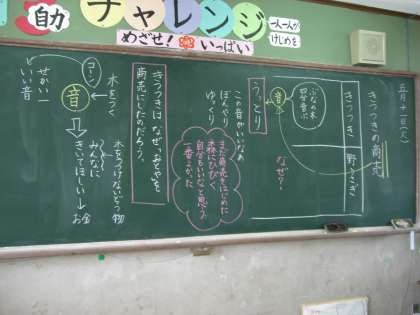 助
チャレンジ
一人一人が
けじめを
めざせ！
いっぱい
五月十一日(火)
きつつきの商売
きつつき
野うさぎ
ぶなの木
四分音ぷ
音
なぜ？
うっとり
この音がいいな
ぼんやり
ゆっくり
森にひびく
自分もいいなと思う
一番よかった
きつつきは、なぜ、おとやを、
商売にしたのだろう。
木をつく
コーン
音
みんなに
きいてほしい
お金
せかい一
いい音